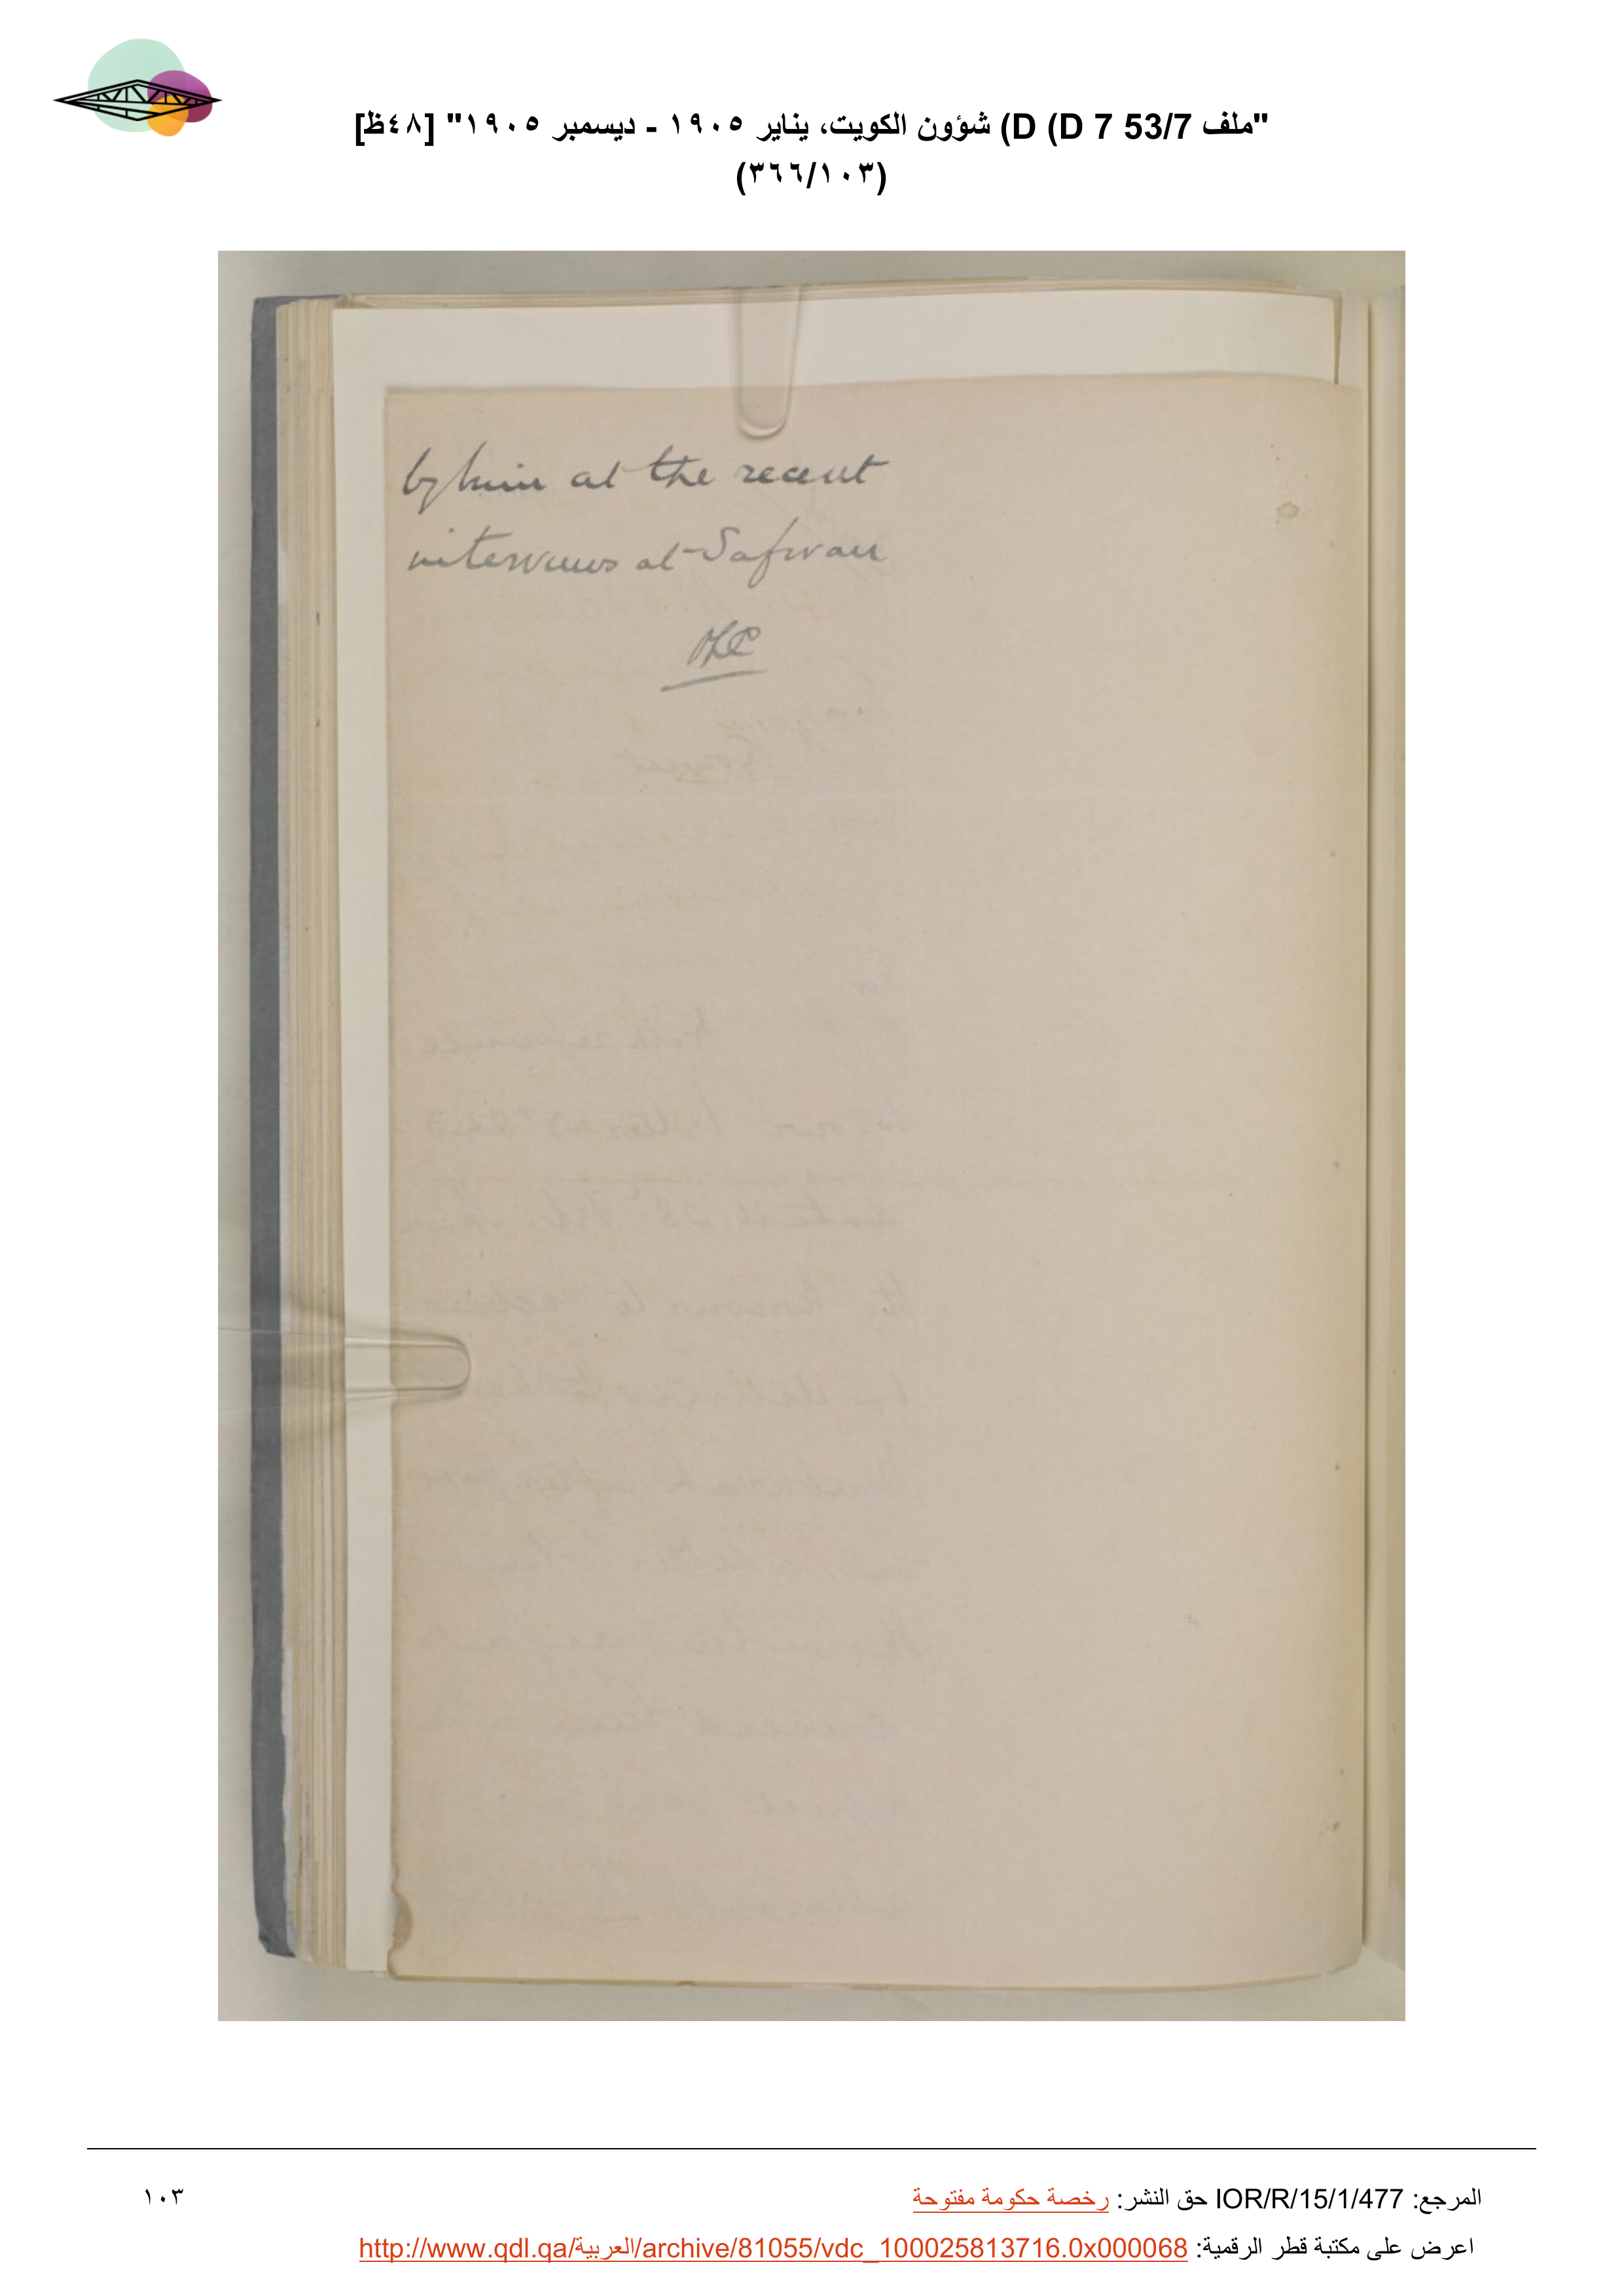 "ملف D (D 7 53/7) شؤون الكويت، يناير ١٩٠٥ - ديسمبر ١٩٠٥" [٤٨ظ]
(٣٦٦/١٠٣)
by him at the recent
interviews at Safwan
المرجع: IOR/R/15/1/477 حق النشر: رخصة حكومة مفتوحة
١٠٣
اعرض على مكتبة قطر الرقمية: http://www.qdl.qa/العربية/archive/81055/vdc_100025813716.0x000068